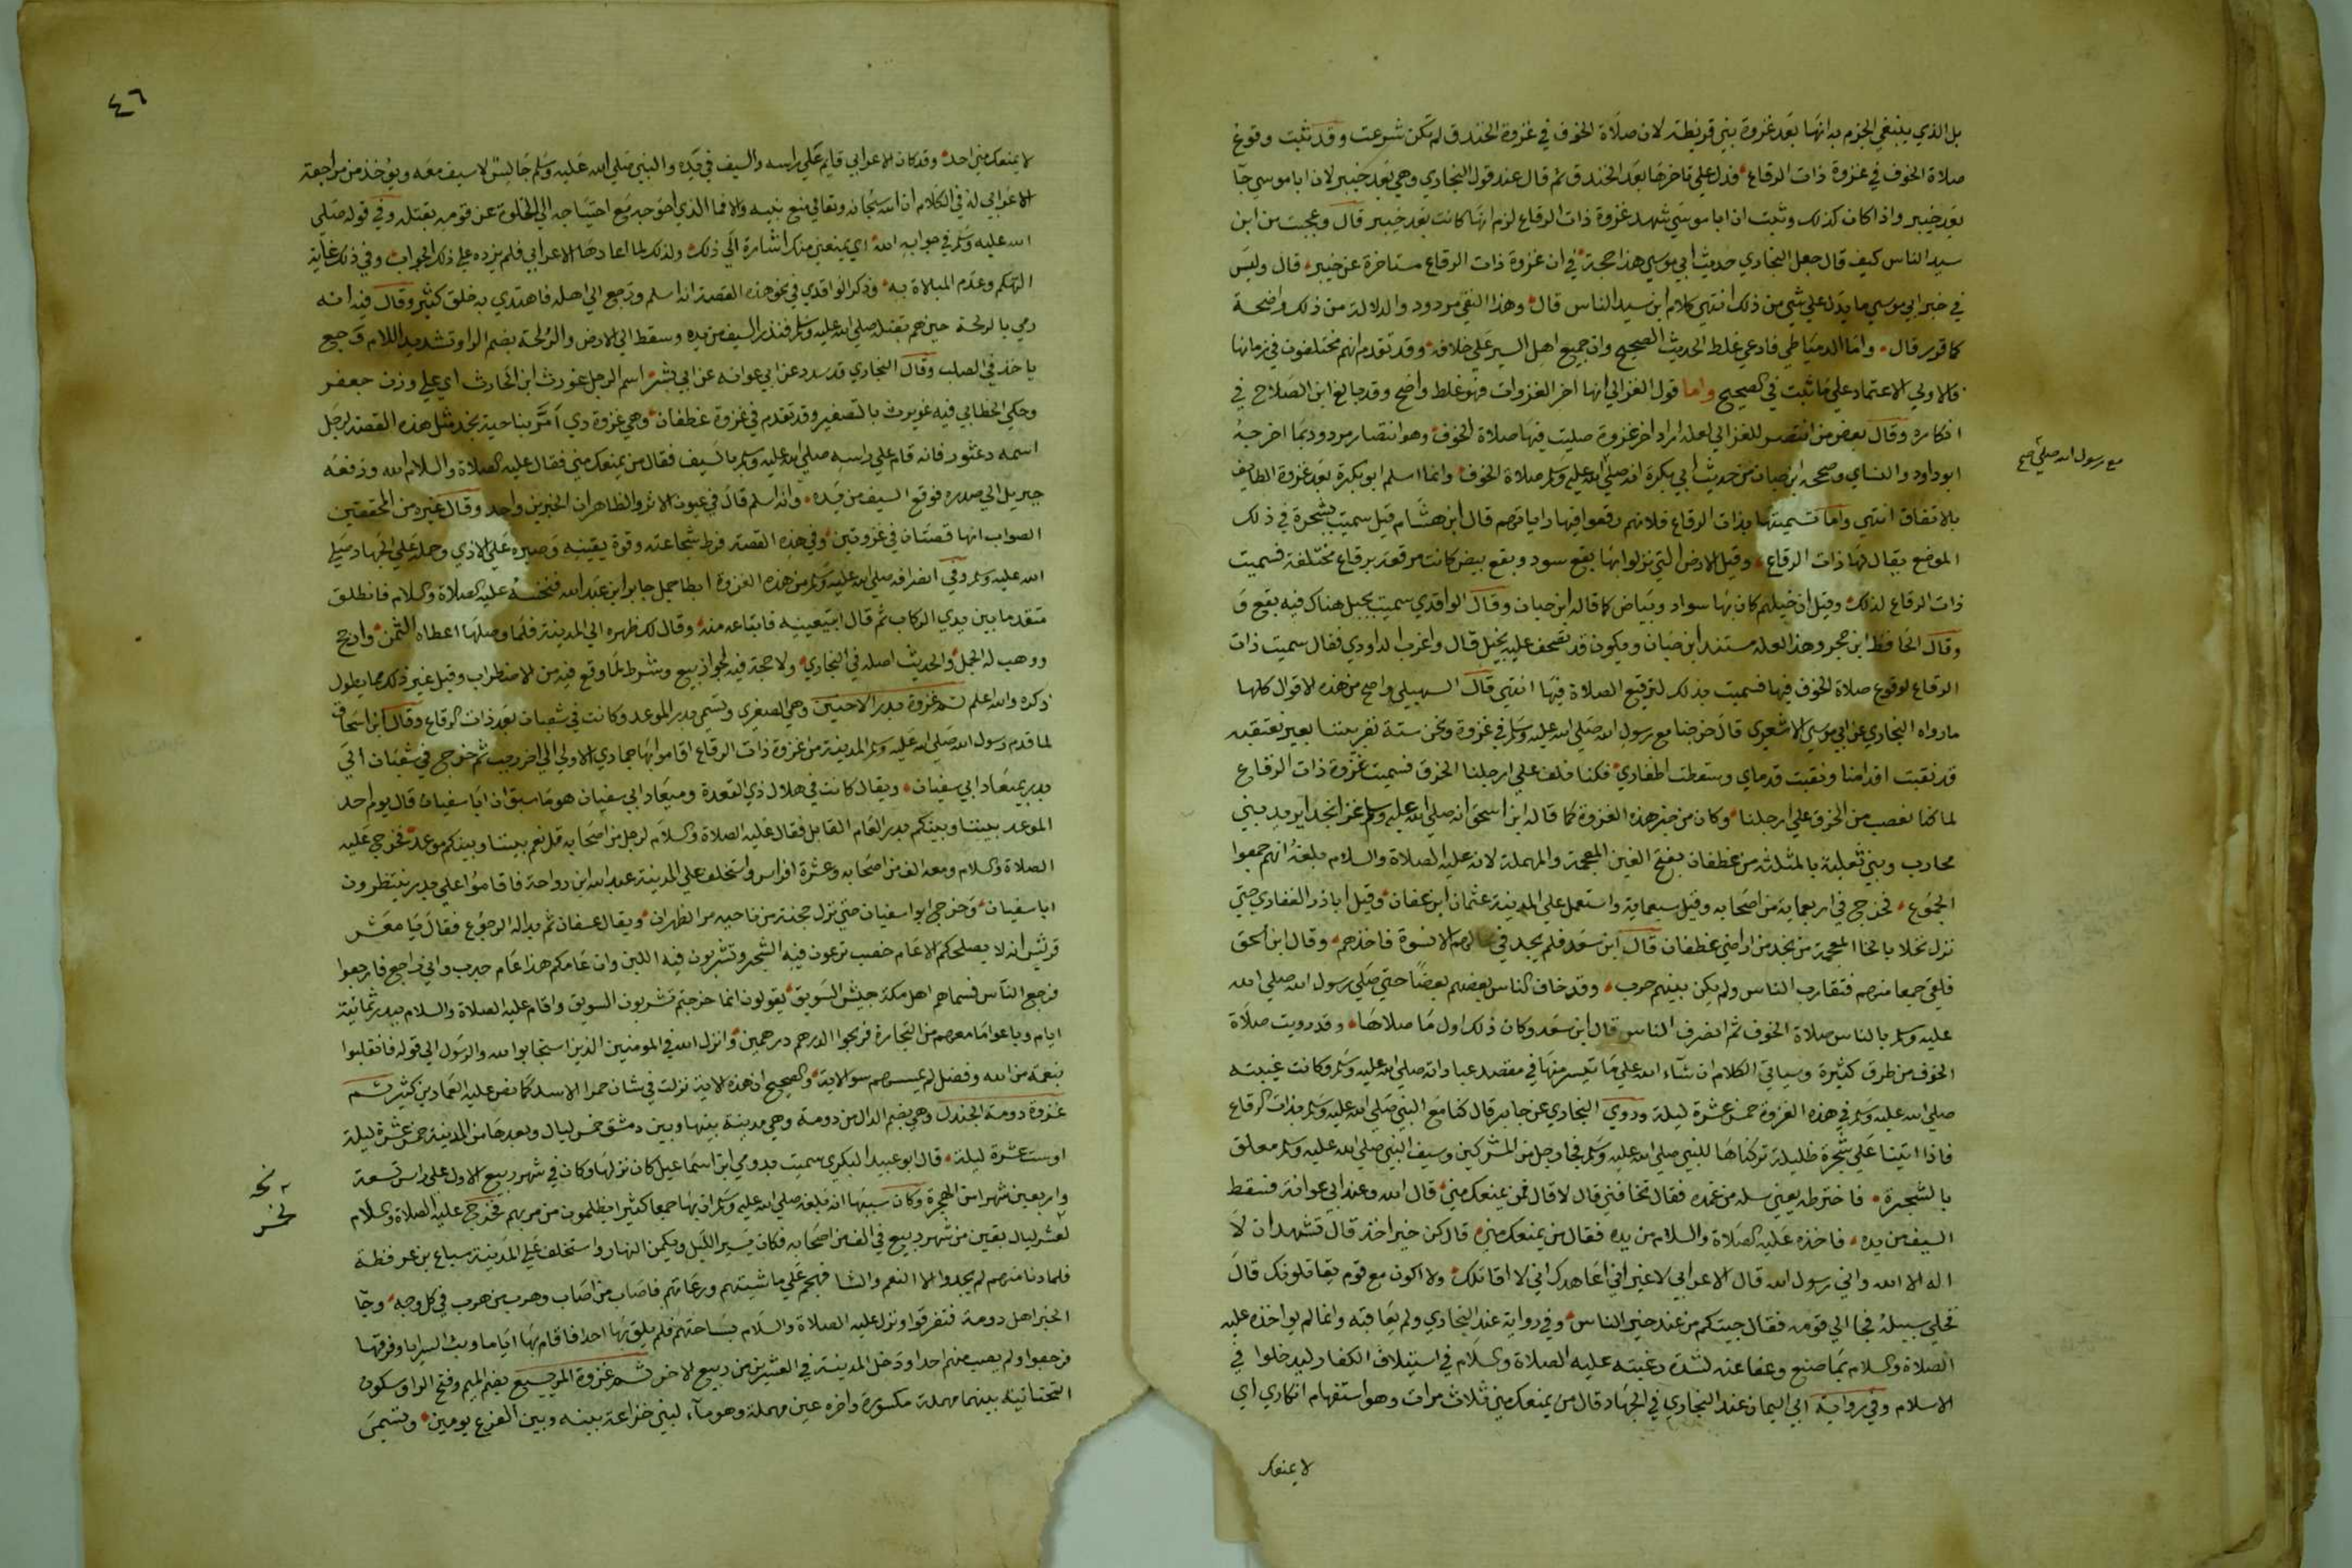 بل الذي ينبغي الجزم به انها بعد غزوة بني قريظة لان صلاة الخوف في غزوة الخندق لم تكن شرعت وقد ثبت وقوع
صلاة الخوف في غزوة ذات الرقاع فدل على تاخرها بعد الخندق ثم قال عند قول البخاري وهي بعد خيبر لان ابا موسى جآ
بعد خيبر واذا كان كذلك وثبت ان ابا موسى شهد غزوة ذات الرقاع لزم انها كانت بعد خيبر قال وعجبت من ابن
سيد الناس كيف قال جعل البخاري حديث ابي موسى هذا حجة في ان غزوة ذات الرقاع متاخرة عن خيبر قال وليس
في خبر ابي موسى ما يدل على شي من ذلك انتهى كلام ابن سيد الناس قال وهذا النفي مردود والدلالة من ذلك واضحة
كما قرر قال واما الدمياطي فادعى غلط الحديث الصحيح وان جميع اهل السير على خلافه وقد تقدم انهم مختلفون في زمانها
فالاولى الاعتماد على ما ثبت في الصحيح واما قول الغزالي انها اخر الغزوات فهو غلط واضح وقد بالغ ابن الصلاح في
انكاره وقال بعض من انتصر للغزالي لعله اراد اخر غزوة صليت فيها صلاة الخوف وهو انتصار مردود بما اخرجه
ابو داود والنساي وصححه ابن حبان من حديث ابي بكرة انه صلى الله عليه وسلم صلاة الخوف وانما اسلم ابو بكرة بعد غزوة الطايف
مع رسول الله صلى صح
بالاتفاق انتهى واما تسميتها بذات الرقاع فلانهم رقعوا فيها راياتهم قال ابن هشام قيل سميت بشجرة في ذلك
الموضع يقال لها ذات الرقاع وقيل الارض التي نزلوا بها بقع سود وبقع بيض كانت مرقعة برقاع مختلفة فسميت
ذات الرقاع لذلك وقيل ان خيلهم كان بها سواد وبياض كما قاله ابن حبان وقال الواقدي سميت بجبل هناك فيه بقع و
وقال الحافظ ابن حجر وهذا لعله مستند ابن حبان ويكون قد تصحف عليه بخيل قال واغرب الداودي فقال سميت ذات
الرقاع لوقوع صلاة الخوف فيها فسميت بذلك لترقيع الصلاة فيها انتهى قال السهيلي واصح من هذه الاقوال كلها
ما رواه البخاري عن ابي موسى الاشعري قال خرجنا مع رسول الله صلى الله عليه وسلم في غزوة ونحن ستة نفر بيننا بعير نعتقبه
قد نقبت اقدامنا ونقبت قدماي وسقطت اظفاري فكنا نلف على ارجلنا الخرق فسميت غزوة ذات الرقاع
لما كنا نعصب من الخرق على ارجلنا وكان من خبر هذه الغزوة كما قاله ابن اسحق انه صلى الله عليه وسلم غزا نجدا يريد بني
محارب وبني ثعلبة بالمثلثة من غطفان بفتح الغين المعجمة والمهملة لانه عليه الصلاة والسلام بلغه انهم جمعوا
الجموع فخرج في اربعماية من اصحابه وقيل سبعماية واستعمل على المدينة عثمان ابن عفان وقيل ابا ذر الغفاري حتى
نزل نخلا بالخا المعجمة من نجد من اراضي غطفان قال ابن سعد فلم يجد في محالهم الا نسوة فاخذهم وقال ابن اسحق
فلقي جمعا منهم فتقارب الناس ولم يكن بينهم حرب وقد خاف الناس بعضهم بعضا حتى صلى رسول الله صلى الله
عليه وسلم بالناس صلاة الخوف ثم انصرف الناس قال ابن سعد وكان ذلك اول ما صلاها وقد رويت صلاة
الخوف من طرق كثيرة وسياتي الكلام ان شآء الله على ما تيسر منها في مقصد عباداته صلى الله عليه وسلم وكانت غيبته
صلى الله عليه وسلم في هذه الغزوة خمس عشرة ليلة وروي البخاري عن جابر قال كنا مع النبي صلى الله عليه وسلم بذات الرقاع
فاذا اتينا على شجرة ظليلة تركناها للنبي صلى الله عليه وسلم فجا رجل من المشركين وسيف النبي صلى الله عليه وسلم معلق
بالشجرة فاخترطه يعني سله من غمده فقال تخافني قال لا قال فمن يمنعك مني قال الله وعند ابي عوانة فسقط
السيف من يده فاخذه عليه الصلاة والسلام من يده فقال من يمنعك مني قال كن خير اخذ قال تشهد ان لا
اله الا الله واني رسول الله قال الاعرابي لا غير اني اعاهدك اني لا اقاتلك ولا اكون مع قوم يقاتلونك قال
فخلى سبيله فجا الى قومه فقال جيتكم من عند خير الناس وفي رواية عند البخاري ولم يعاقبه وانما لم يواخذه عليه
الصلاة والسلام بما صنع وعفا عنه لشدة رغبته عليه الصلاة والسلام في استيلاف الكفار ليدخلوا في
الاسلام وفي رواية ابي اليمان عند البخاري في الجهاد قال من يمنعك مني ثلاث مرات وهو استفهام انكاري اي
لا يمنعك
٤٦
لا يمنعك مني احد وقد كان الاعرابي قايم على راسه والسيف في يده والنبي صلى الله عليه وسلم جالس لا سيف معه ويؤخذ من مراجعة
الاعرابي له في الكلام ان الله سبحانه وتعالى منع نبيه والا فما الذي احوجه مع احتياجه الى الحظوة عند قومه بقتله وفي قوله صلى
الله عليه وسلم في جوابه الله اي يمنعني منك اشارة الى ذلك ولذلك لما اعادها الاعرابي فلم يزده على ذلك الجواب وفي ذلك غاية
التهكم وعدم المبالاة به وذكر الواقدي في نحو هذه القصة انه اسلم ورجع الى اهله فاهتدى به خلق كثير وقال فيه انه
رمي بالزلخة حين هم بقتله صلى الله عليه وسلم فندر السيف من يده وسقط الى الارض والزلخة بضم الزا وتشديد اللام وجع
ياخذ في الصلب وقال البخاري قد سدد عن ابي عوانه عن ابي بشر اسم الرجل غورث ابن الحارث اي على وزن جعفر
وحكي الخطابي فيه غويرث بالتصغير وقد تقدم في غزوة غطفان وهي غزوة ذي امر بناحية نجد مثل هذه القصة لرجل
اسمه دعثور فانه قام على راسه صلى الله عليه وسلم بالسيف فقال من يمنعك مني فقال عليه الصلاة والسلام الله ودفعه
جبريل الى صدره فوقع السيف من يده وانه اسلم قال في عيون الاثر والظاهر ان الخبرين واحد وقال غيره من المحققين
الصواب انها قصتان في غزوتين وفي هذه القصة فرط شجاعته وقوة يقينه وصبره على الاذى وحمله على الجهاد صلى
الله عليه وسلم وفي انصرافه صلى الله عليه وسلم من هذه الغزوة ابطا جمل جابر ابن عبد الله فنخسه عليه الصلاة والسلام فانطلق
متقدما بين يدي الركاب ثم قال اتبيعينيه فابتاعه منه وقال لك ظهره الى المدينة فلما وصلها اعطاه الثمن وارجح
ووهب له الجمل والحديث اصله في البخاري ولا حجة فيه لجواز بيع وشرط لما وقع فيه من الاضطراب وقيل غير ذلك مما يطول
ذكره والله اعلم ثم غزوة بدر الاخيرة وهي الصغرى وتسمى بدر الموعد وكانت في شعبان بعد ذات الرقاع وقال ابن اسحاق
لما قدم رسول الله صلى الله عليه وسلم المدينة من غزوة ذات الرقاع اقاموا بها جمادى الاولى الى اخر رجب ثم خرج في شعبان الى
بدر لميعاد ابي سفيان ويقال كانت في هلال ذي القعدة وميعاد ابي سفيان هو ما سبق ان ابا سفيان قال يوم احد
الموعد بيننا وبينكم بدر العام القابل فقال عليه الصلاة والسلام لرجل من اصحابه قل نعم بيننا وبينكم موعد فخرج عليه
الصلاة والسلام ومعه الف من اصحابه وعشرة افراس واستخلف على المدينة عبد الله ابن رواحة فاقاموا على بدر ينتظرون
ابا سفيان وخرج ابو سفيان حتى نزل مجنة من ناحية مر الظهران ويقال عسفان ثم بدا له الرجوع فقال يا معشر
قريش انه لا يصلحكم الا عام خصب ترعون فيه الشجر وتشربون فيه اللبن وان عامكم هذا عام جدب واني راجع فارجعوا
فرجع الناس فسماهم اهل مكة جيش السويق يقولون انما خرجتم تشربون السويق واقام عليه الصلاة والسلام ببدر ثمانية
ايام وباعوا ما معهم من التجارة فربحوا الدرهم درهمين وانزل الله في المومنين الذين استجابوا لله والرسول الى قوله فانقلبوا
بنعمة من الله وفضل لم يمسسهم سو الاية والصحيح ان هذه الاية نزلت في شان حمرا الاسد كما نص عليه العماد بن كثير ثم
غزوة دومة الجندل وهي بضم الدال من دومة وهي مدينة بينها وبين دمشق خمس ليال وبعدها من المدينة خمس عشرة ليلة
او ست عشرة ليلة قال ابو عبيد البكري سميت بدومي ابن اسماعيل كان نزلها وكان في شهر ربيع الاول على راس تسعة
واربعين شهرا من الهجرة وكان سببها انه بلغه صلى الله عليه وسلم ان بها جمعا كثيرا يظلمون من مر بهم فخرج عليه الصلاة والسلام
لعشر ليال بقين من شهر ربيع في الف من اصحابه فكان يسير الليل ويكمن النهار واستخلف على المدينة سباع بن عرفطة
فلما دنا منهم لم يجدوا الا النعم والشا فهجم على ماشيتهم ورعاتهم فاصاب من اصاب وهرب من هرب في كل وجه وجآ
الخبر اهل دومة فتفرقوا ونزل عليه الصلاة والسلام بساحتهم فلم يلق بها احدا فاقام بها اياما وبث السرايا وفرقها
فرجعوا ولم يصب منهم احدا ودخل المدينة في العشرين من ربيع الاخر ثم غزوة المريسيع بضم الميم وفتح الرا وسكون
التحتانيتين بينهما مهملة مكسورة واخره عين مهملة وهو مآء لبني خزاعة بينه وبين الفرع يومين وتسمى